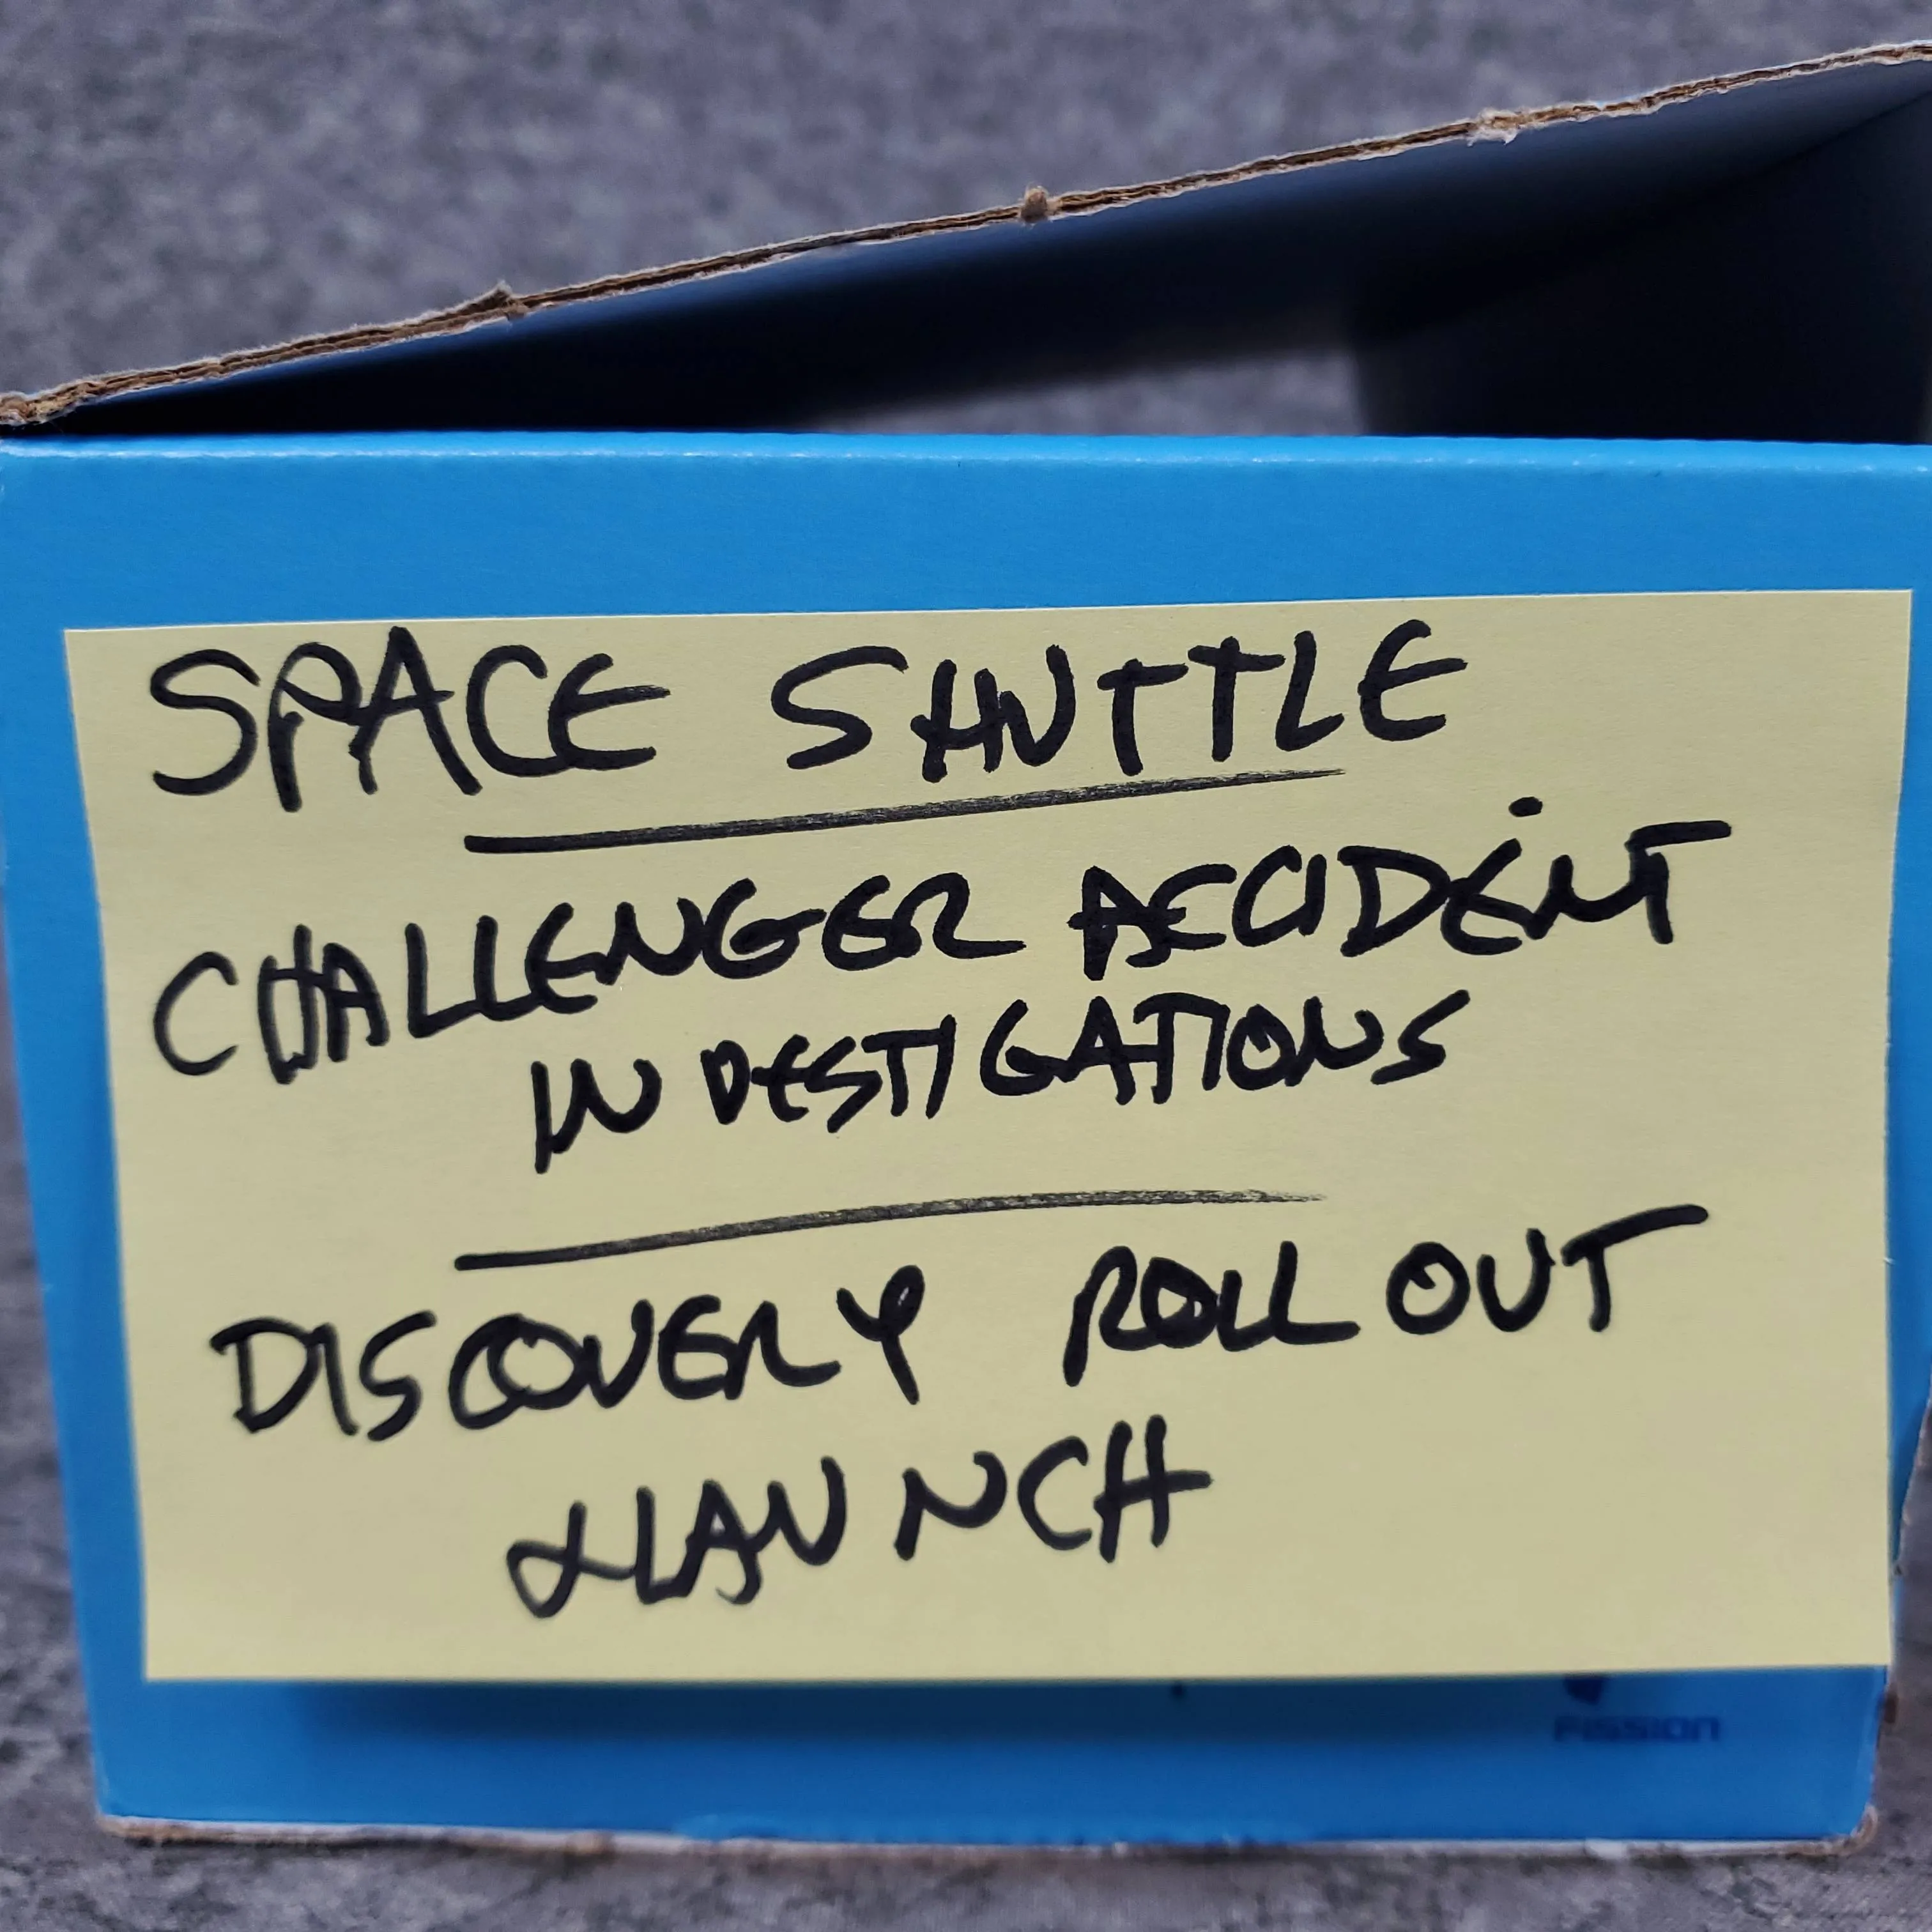 SPACE SHUTTLE
CHALLENGER ACCIDENT
INVESTIGATIONS
DISCOVERY ROLL OUT
& LAUNCH
FISSION